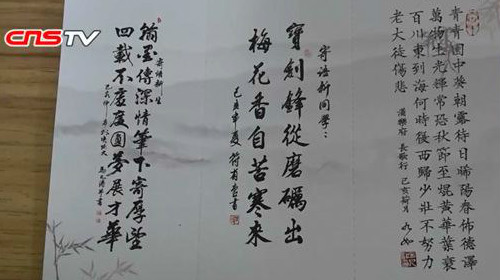 CNSTV
青青園中葵朝露待日晞陽春佈德澤
萬物生光輝常恐秋節至焜黃華葉衰
百川東到海何時復西歸少壯不努力
老大徒傷悲 漢樂府 長歌行 己亥荷月
寄語新同學
寶劍鋒從磨礪出
梅花香自苦寒來
己亥中夏 符 書
寄語新生
翰墨傳深情筆下寄厚望
四載不虛度圓夢展才華
己亥仲